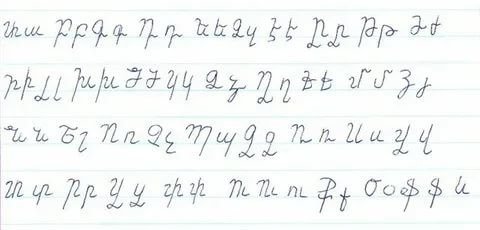 Աա Բբ Գգ Դդ Եե Զզ Էէ Ըը Թթ Ժժ
Իի Լլ Խխ Ծծ Կկ Ձձ Ղղ Ճճ Մմ Յյ
Նն Շշ Ոո Չչ Պպ Ջջ Ռռ Սս Վվ
Տտ Րր Ցց Փփ Ու Ու ու Քք Օօ Ֆֆ և